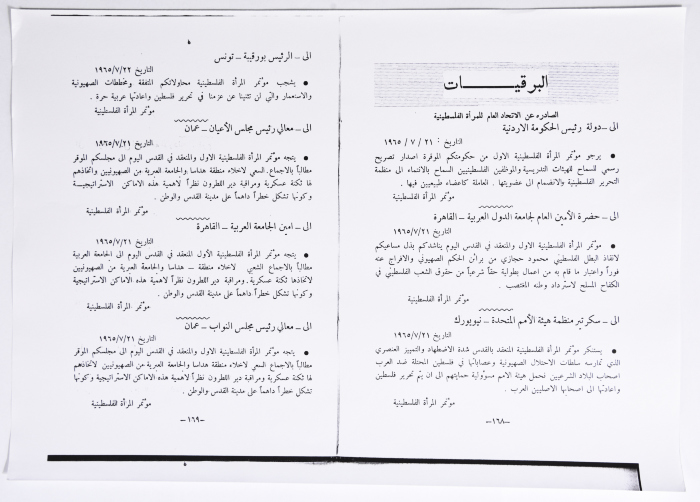 البرقيـــــات
الصادره عن الاتحاد العام للمرأة الفلسطينية
الى – دولة رئيس الحكومة الاردنية
التاريخ : ٢١ / ٧ / ١٩٦٥
● يرجو مؤتمر المرأة الفلسطينية الاول من حكومتكم الموقرة اصدار تصريح
رسمي للسماح للهيئات التدريسية والموظفين الفلسطينيين السماح بالانتماء الى منظمة
التحرير الفلسطينية والانضمام الى عضويتها . العاملة كاعضاء طبيعيين فيها .
مؤتمر المرأة الفلسطينية
الى – حضرة الأمين العام لجامعة الدول العربية – القاهرة
التاريخ ١٩٦٥/٧/٢١
● مؤتمر المرأة الفلسطينية الاول والمنعقد في القدس اليوم يناشدكم بذل مساعيكم
لانقاذ البطل الفلسطيني محمود حجازي من براثن الحكم الصهيوني والافراج عنه
فوراً واعتبار ما قام به من اعمال بطولية حقاً شرعياً من حقوق الشعب الفلسطيني في
الكفاح المسلح لاسترداد وطنه المغتصب .
مؤتمر المرأة الفلسطينية
الى – سكرتير منظمة هيئة الأمم المتحدة – نيويورك
التاريخ ١٩٦٥/٧/٢١
● يستنكر مؤتمر المرأة الفلسطينية المنعقد بالقدس شدة الاضطهاد والتمييز العنصري
الذي تمارسه سلطات الاحتلال الصهيونية وعصاباتها في فلسطين المحتلة ضد العرب
اصحاب البلاد الشرعيين تحمل هيئة الامم مسؤولية حمايتهم الى ان يتم تحرير فلسطين
واعادتها الى اصحابها الاصليين العرب .
مؤتمر المرأة الفلسطينية
–١٦٨–
الى – الرئيس بورقيبة – تونس
التاريخ ١٩٦٥/٧/٢٢
● يشجب مؤتمر المرأة الفلسطينية محاولاتكم المتفقة ومخططات الصهيونية
والاستعمار والتي لن تثنينا عن عزمنا في تحرير فلسطين واعادتها عربية حرة .
مؤتمر المرأة الفلسطينية
الى – معالي رئيس مجلس الأعيان – عمان
التاريخ ١٩٦٥/٧/٢١
● يتجه مؤتمر المرأة الفلسطينية الاول والمنعقد في القدس اليوم الى مجلسكم الموقر
مطالباً بالاجماع السعي لاخلاء منطقة هداسا والجامعة العبرية من الصهيونيين واتخاذهم
لها ثكنة عسكرية ومراقبة دير اللطرون نظراً لاهمية هذه الاماكن الاستراتيجيـة
وكونها تشكل خطراً داهماً على مدينة القدس والوطن .
مؤتمر المرأة الفلسطينية
الى – امين الجامعة العربية – القاهرة
التاريخ ١٩٦٥/٧/٢١
● يتجه مؤتمر المرأة الفلسطينية الأول المنعقد في القدس اليوم الى الجامعة العربية
مطالباً بالاجماع الشعبي لاخلاء منطقة – هداسا والجامعة العبرية من الصهيونيين
لاتخاذها ثكنة عسكرية ومراقبة دير اللطرون نظراً لاهمية هذه الاماكن الاستراتيجية
وكونها تشكل خطراً داهماً على مدينة القدس والوطن .
مؤتمر المرأة الفلسطينية
الى – معالي رئيس مجلس النواب – عمان
التاريخ ١٩٦٥/٧/٢١
● يتجه مؤتمر المرأة الفلسطينية الاول والمنعقد في القدس اليوم الى مجلسكم الموقر
مطالباً بالاجماع السعي لاخلاء منطقة هداسا والجامعة العبرية من الصهيونيين لاتخاذهم
لها ثكنة عسكرية ومراقبة دير اللطرون نظراً لاهمية هذه الاماكن الاستراتيجية وكونها
تشكل خطراً داهماً على مدينة القدس والوطن .
مؤتمر المرأة الفلسطينية
–١٦٩–